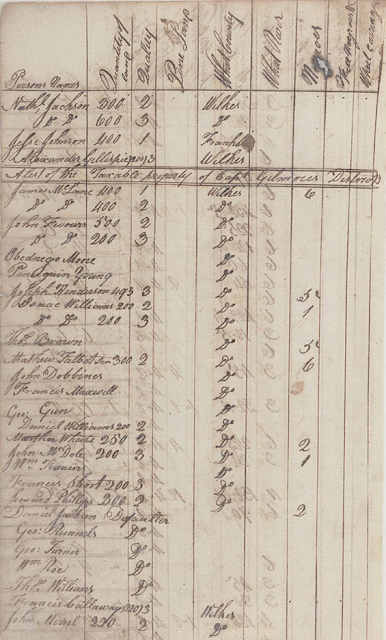 Persons Names Quantity of Land Quality Pine Land What County What River Negroes
Nathl. Jackson 200 2 Wilkes
Do Do 600 3 Do
Jesse Johnson 400 1 Franklin
Alexander Gillespie 200 3 Wilkes
A List of the Taxable property of Capt. Gilmores District
James McLane 400 1 Wilkes 6
Do Do 400 2 Do
John Trvours 500 2 Do
Do Do 200 3 Do
Obednego Moore Do
Young Do
Joseph Henderson 493 3 Do 5
Isaac Williams 200 2 Do 1
Do Do 200 3 Do
Thos. Brown Do 5
Mathew Talbot Sen 300 2 Do 6
John Dobbines Do
Francis Maxwell Do
Geo: Gun Do
Daniel Williams 200 2 Do
Martha White 250 2 Do 2
John McDole 200 3 Do 1
Wm. Do
Francis Short 200 3 Do
Phillips 300 2 Do
Daniel Jackson Defaulter 2
Geo: Runnels Do
Geo: Turner Do
Wm Roe Do
Thos. Williams Do
Francis Callaway 200 3 Wilkes
John 220 2 Do